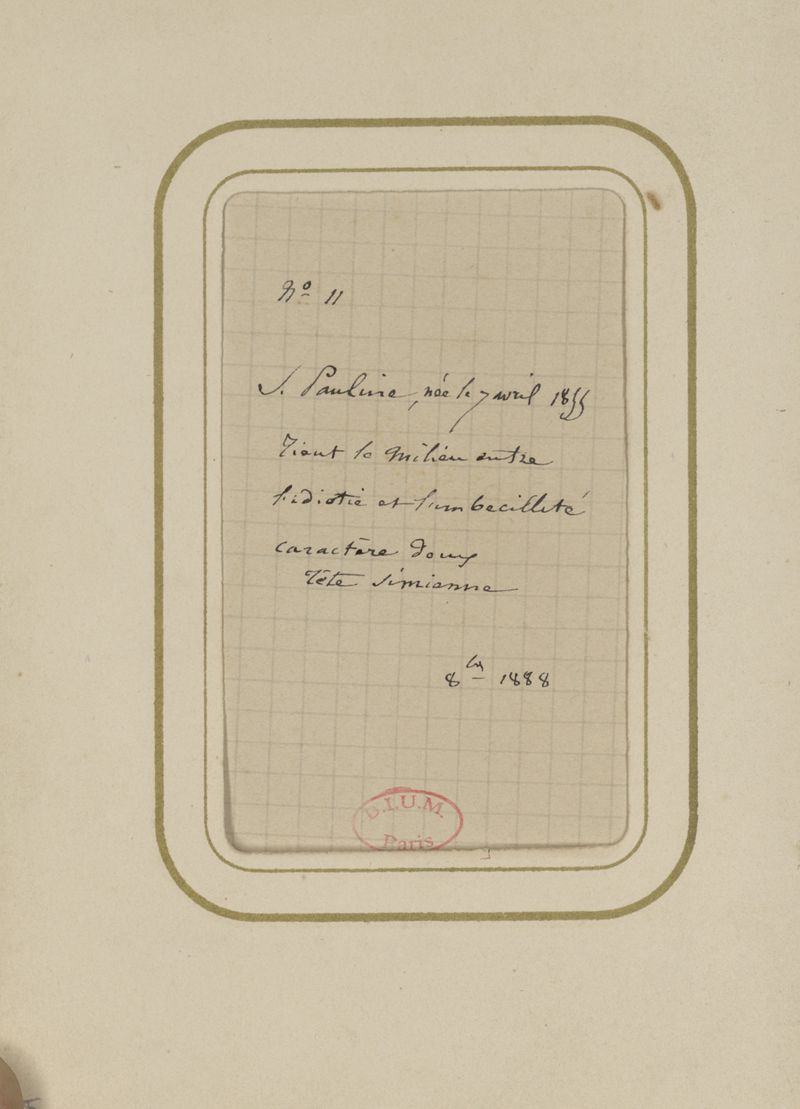 Nº 11
S. Pauline, née le 7 avril 1855
Tient le milieu entre
l'idiotie et l'imbecillité
caractère doux
Tête simienne
8bre 1888
B.I.U.M.
Paris